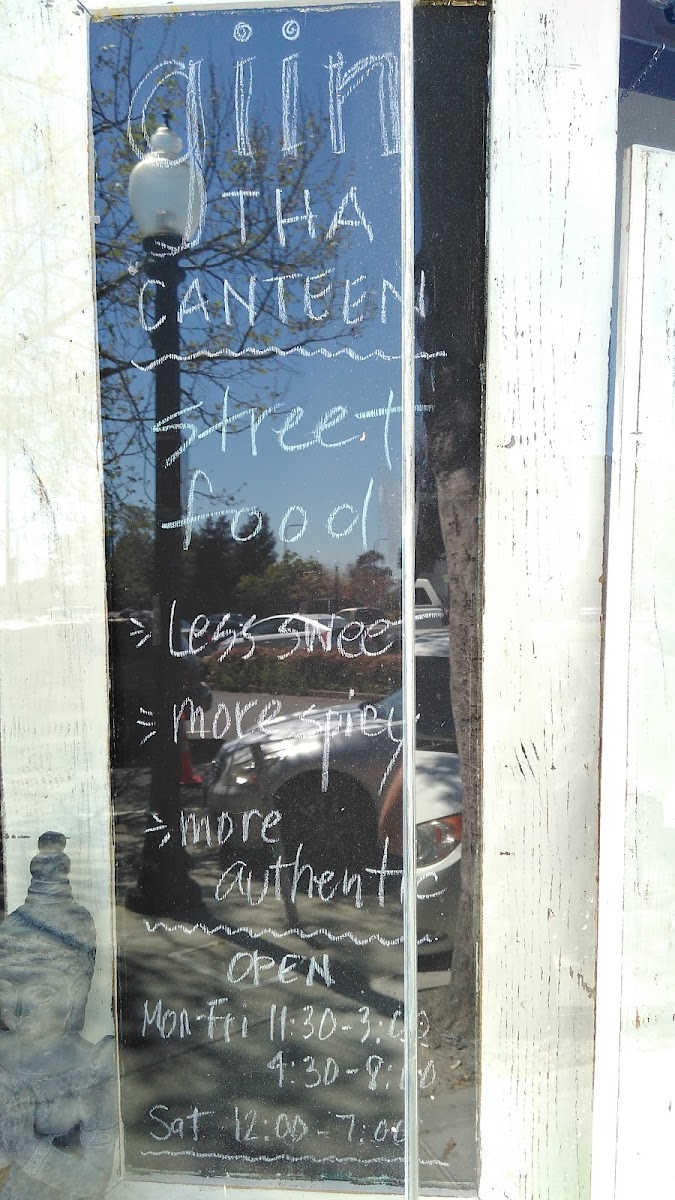 giin
THA
CANTEEN
street
food
Less swee
more spicy
more
authentic
OPEN
Mon-Fri 11:30-3:00
4:30-8:00
Sat 12:00-7:00